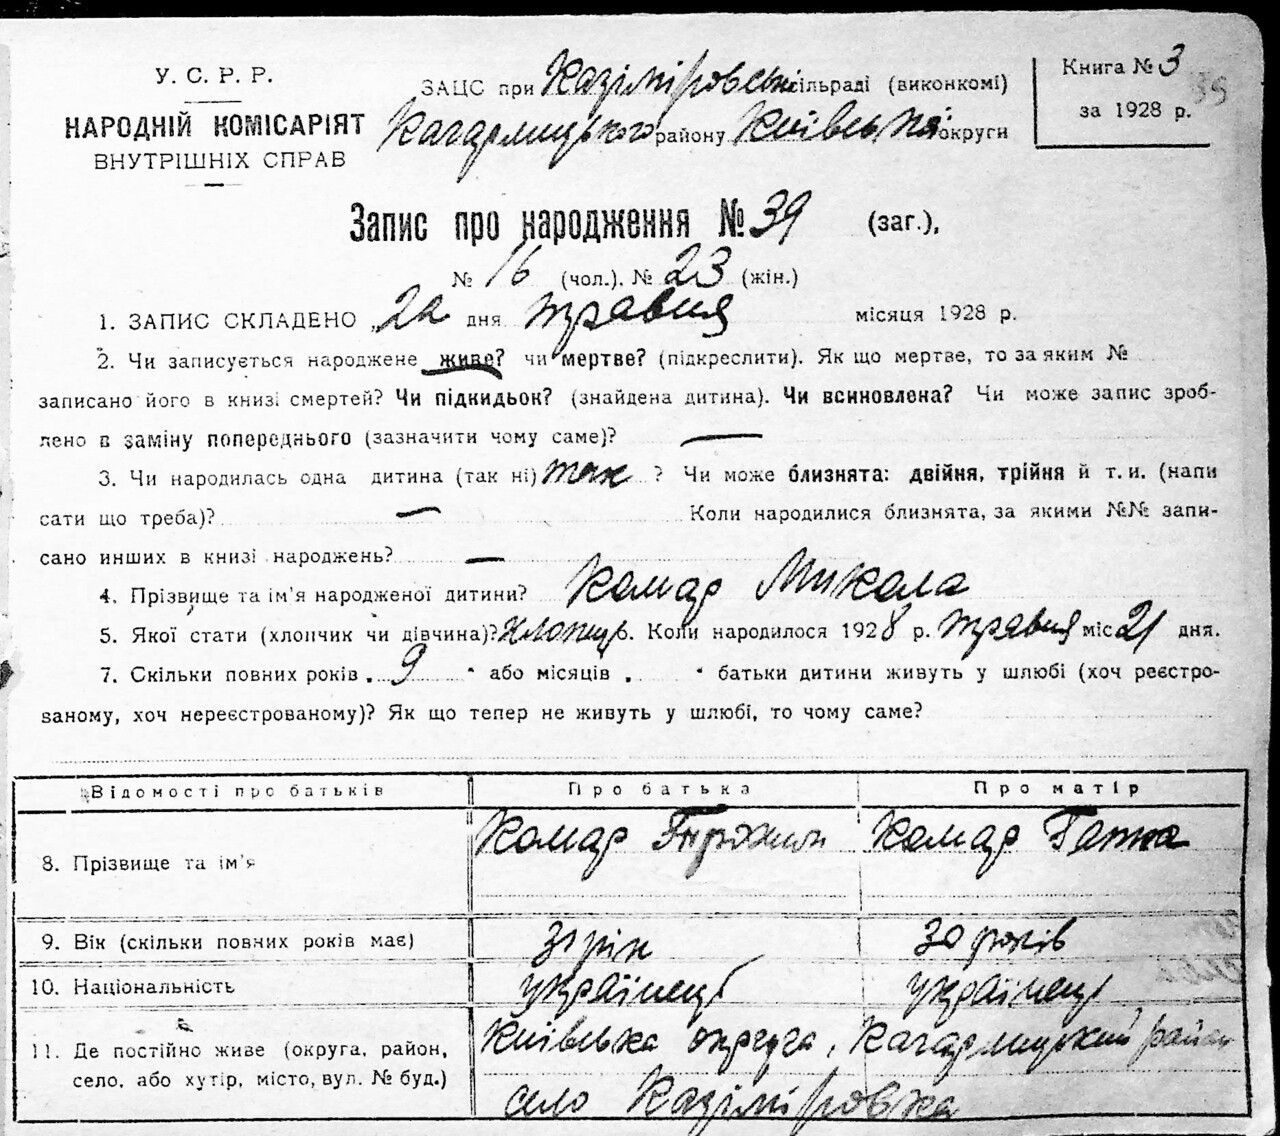 У. С. Р. Р.
НАРОДНІЙ КОМІСАРІЯТ
ВНУТРІШНІХ СПРАВ
ЗАЦС при Казіміровській сільраді (виконкомі)
Кагарлицького району Київська округи
Книга № 3
за 1928 р.
39
Запис про народження № 39 (заг.),
№ 16 (чол.). № 23 (жін.)
1. ЗАПИС СКЛАДЕНО 22 дня травня місяця 1928 р.
2. Чи записується народжене живе? чи мертве? (підкреслити). Як що мертве, то за яким №
записано його в книзі смертей? Чи підкидьок? (знайдена дитина). Чи всиновлена? Чи може запис зроб-
лено в заміну попереднього (зазначити чому саме)? —
3. Чи народилась одна дитина (так ні) так ? Чи може близнята: двійня, трійня й т. и. (напи
сати що треба)? — Коли народилися близнята, за якими №№ запи-
сано инших в книзі народжень? —
4. Прізвище та ім'я народженої дитини? Комар Микола
5. Якої стати (хлопчик чи дівчина)? Хлопець 6. Коли народилося 1928 р. травня міс 21 дня.
7. Скільки повних років 9 або місяців батьки дитини живуть у шлюбі (хоч реєстро-
ваному, хоч нереєстрованому)? Як що тепер не живуть у шлюбі, то чому саме?
Відомості про батьків Про батька Про матір
8. Прізвище та ім'я Комар Комар Ганна
9. Вік (скільки повних років має) 31 рік 30 років
10. Національність українець українець
11. Де постійно живе (округа, район, село, або хутір, місто, вул. № буд.) Київська округа, Кагарлицький район
село Казіміровка